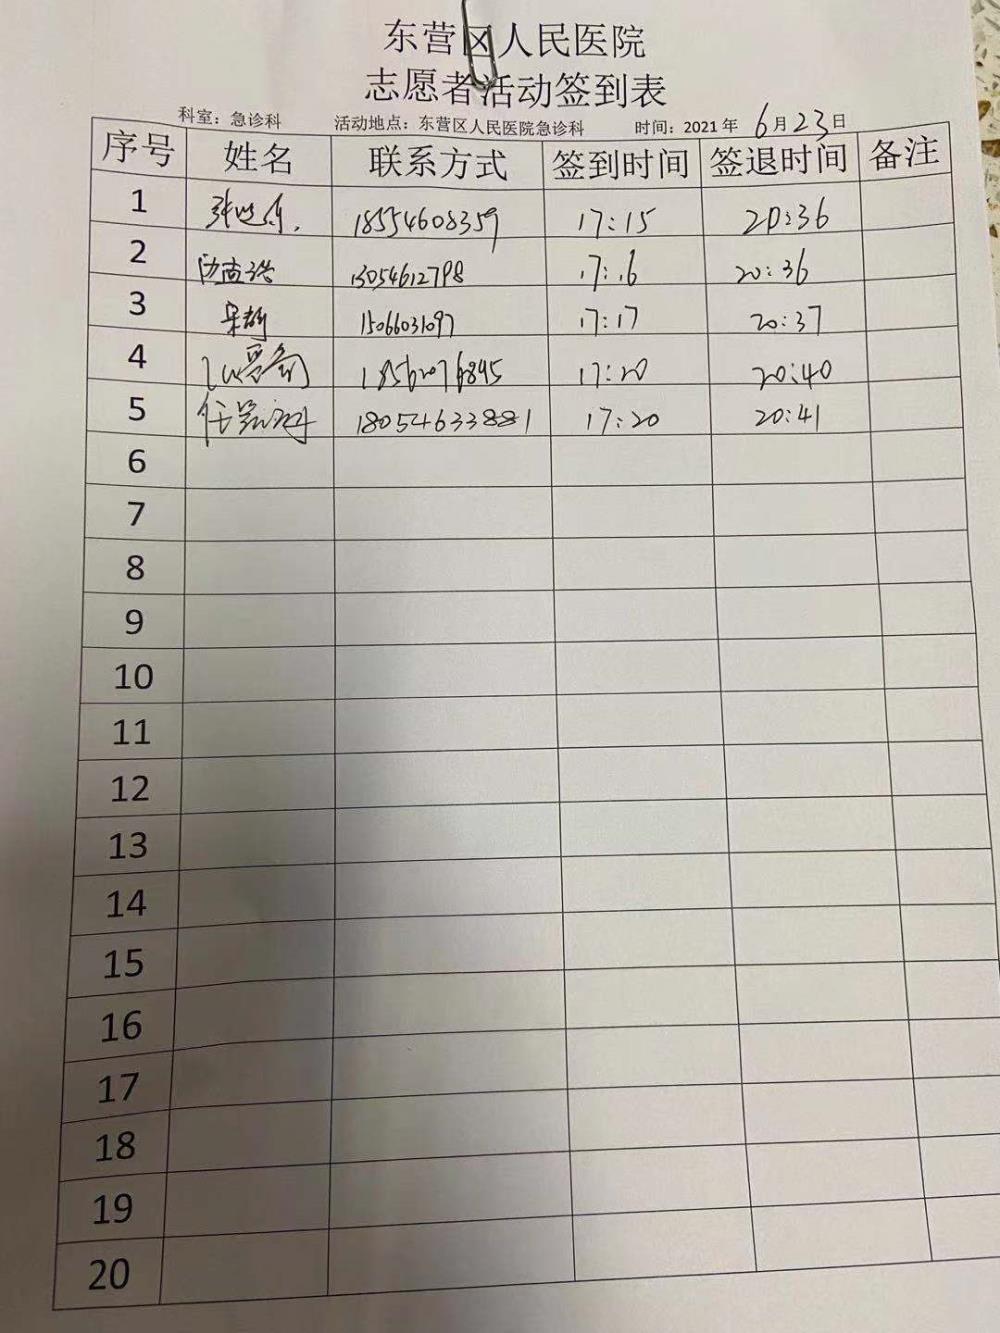 东营区人民医院
志愿者活动签到表
科室：急诊科 活动地点：东营区人民医院急诊科 时间：2021年 6月23日
序号 姓名 联系方式 签到时间 签退时间 备注
1 18554608359 17:15 20:36
2 13054612798 17:16 20:36
3 15066031097 17:17 20:37
4 17:20 20:40
5 18054633881 17:20 20:41
6
7
8
9
10
11
12
13
14
15
16
17
18
19
20